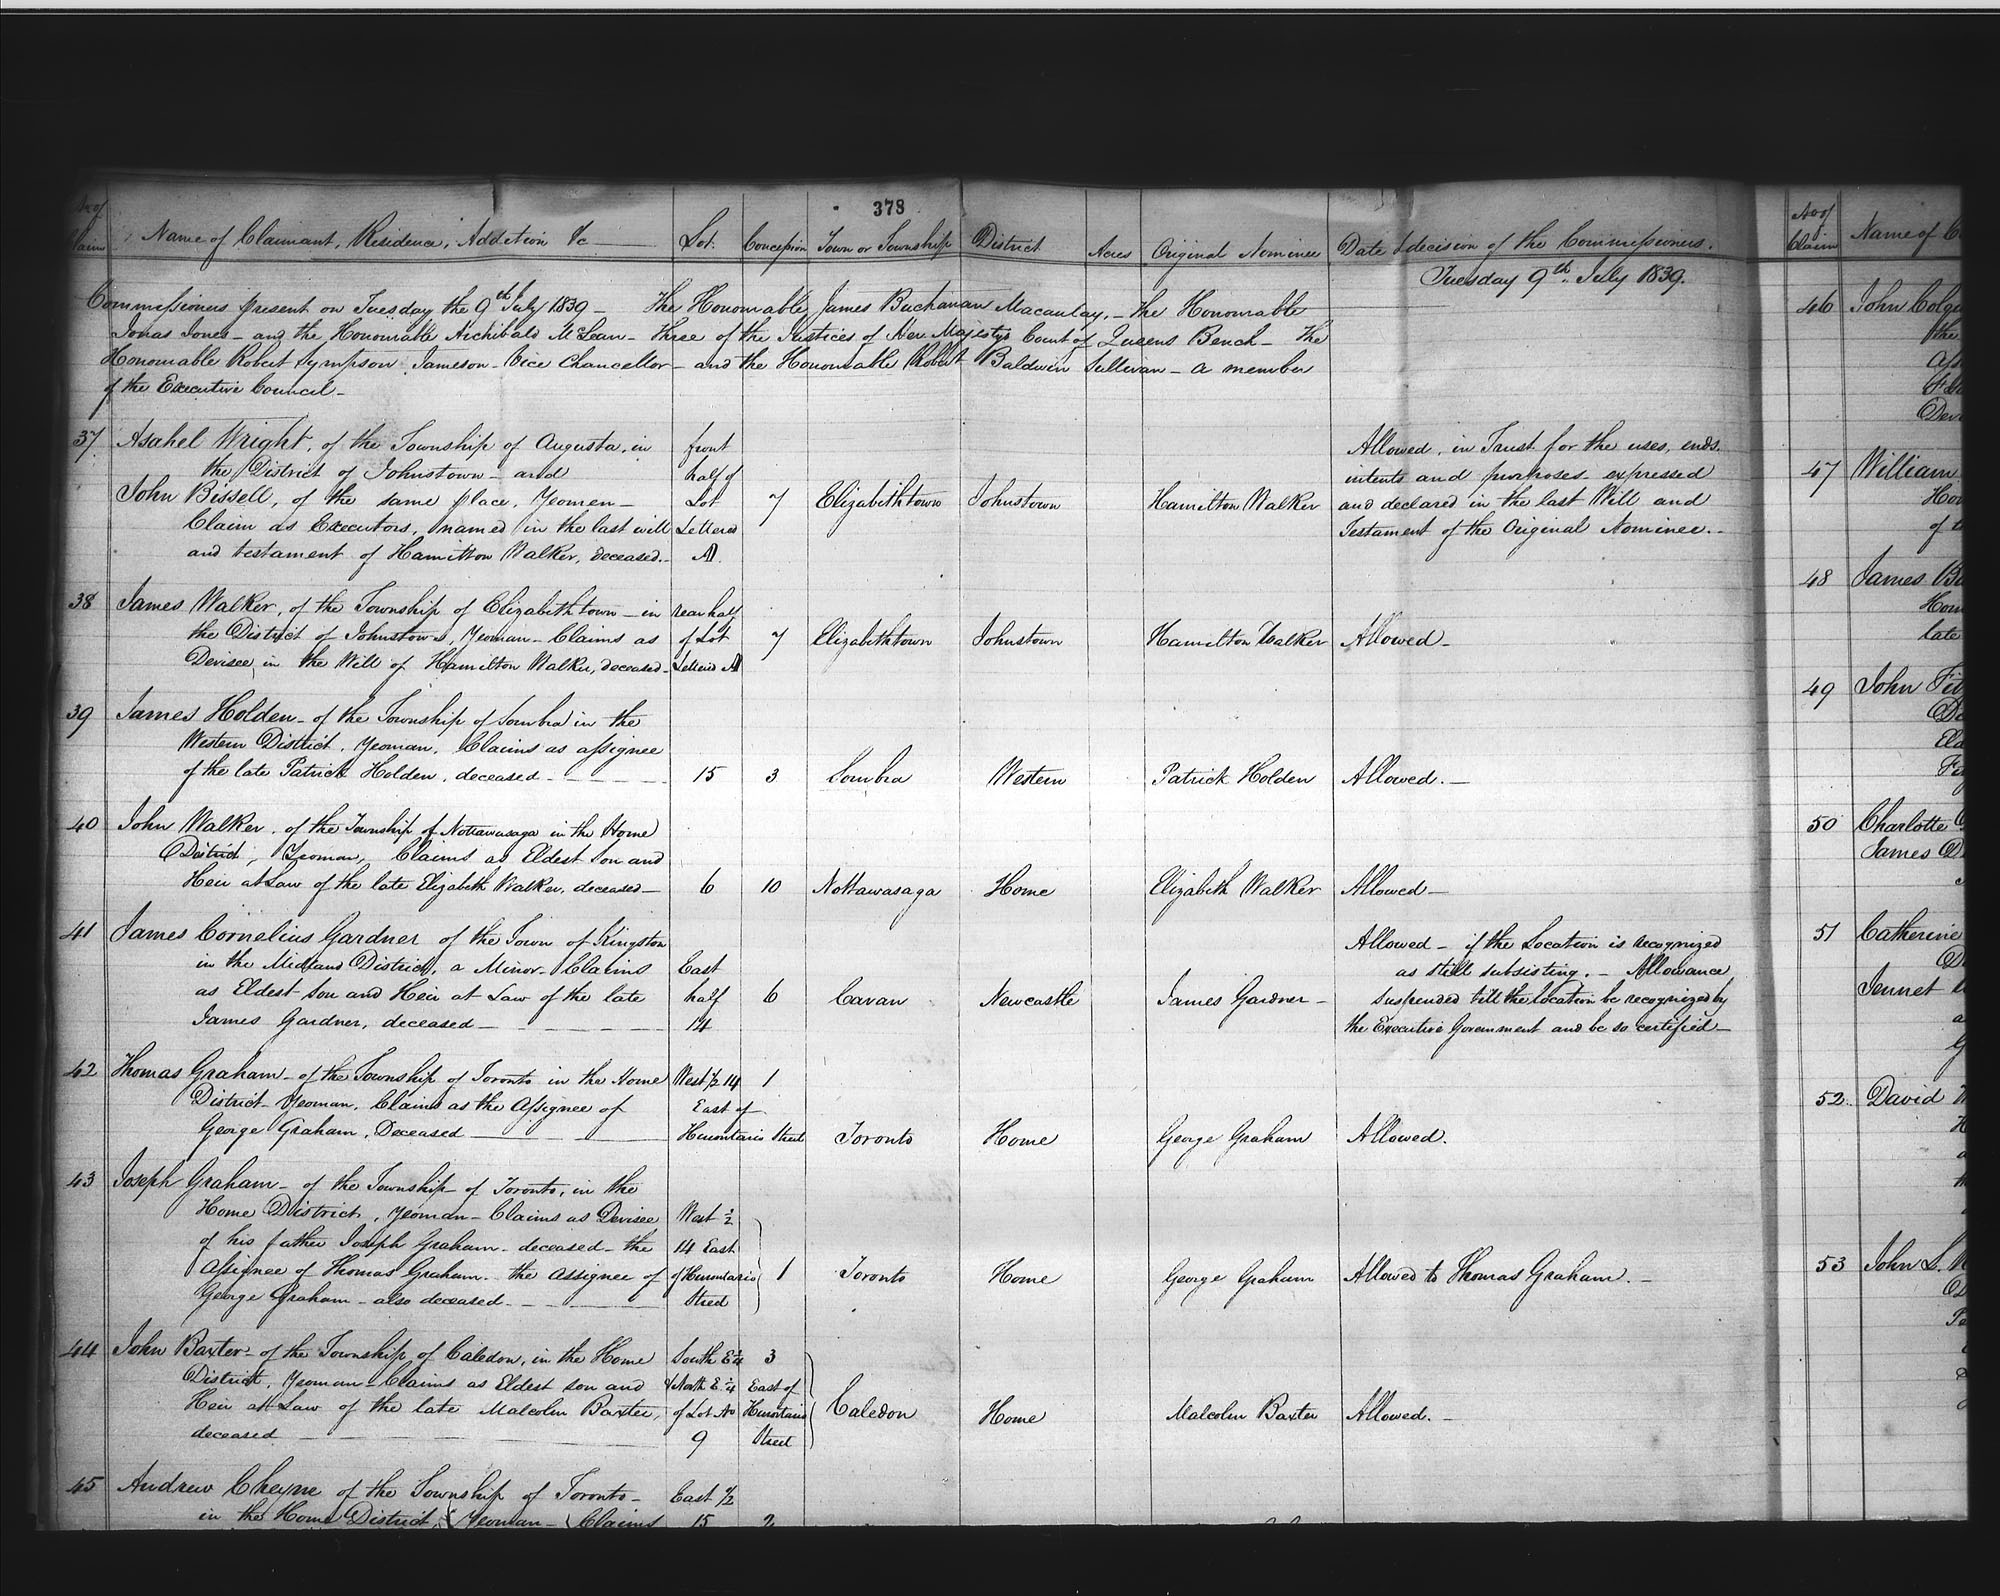 378
No of Claim
Name of Claimant, Residence, Addition &c
Lot.
Concession
Town or Township
District
Acres
Original Nominee
Date & decision of the Commissioners.
Tuesday 9th. July 1839.
Commissioners present on Tuesday the 9th July 1839 - The Honourable James Buchanan Macaulay, - the Honourable
Jonas Jones - and the Honourable Archibald McLean - three of the Justices of Her Majestys Court of Queens Bench - The
Honourable Robert Sympson Jameson - Vice Chancellor - and the Honourable Robert Baldwin Sullivan - a member
of the Executive Council -
37
Asahel Wright, of the Township of Augusta, in
the District of Johnstown - and
John Bissell, of the same place, Yeomen -
Claim as Executors, named in the last will
and testament of Hamilton Walker, deceased. -
front
half of
Lot
Lettered
A.
7
Elizabethtown
Johnstown
Hamilton Walker
Allowed, in Trust for the uses, ends,
intents and purposes expressed
and declared in the last Will and
Testament of the Original Nominee. -
38
James Walker, of the Township of Elizabethtown - in
the District of Johnstown, Yeoman - Claims as
Devisee, in the Will of Hamilton Walker, deceased -
rear half
of Lot
Lettered A
7
Elizabethtown
Johnstown
Hamilton Walker
Allowed -
39
James Holden - of the Township of Sombra in the
Western District, Yeoman, Claims as assignee
of the late Patrick Holden, deceased - - -
15
3
Sombra
Western
Patrick Holden
Allowed. -
40
John Walker, of the Township of Nottawasaga in the Home
District, Yeoman, Claims as Eldest Son and
Heir at Law of the late Elizabeth Walker, deceased -
6
10
Nottawasaga
Home
Elizabeth Walker
Allowed -
41
James Cornelius Gardner of the Town of Kingston
in the Midland District, a Minor - Claims
as Eldest Son and Heir at Law of the late
James Gardner, deceased - - - -
East
half
14
6
Cavan
Newcastle
James Gardner -
Allowed - if the Location is recognized
as still subsisting. - Allowance
suspended till the location be recognized by
the Executive Government and be so certified -
42
Thomas Graham - of the Township of Toronto in the Home
District - Yeoman, Claims as the Assignee of
George Graham, Deceased -
West 1/2 14
East of
Hurontario Street
1
Toronto
Home
George Graham
Allowed.
43
Joseph Graham - of the Township of Toronto, in the
Home District, Yeoman - Claims as Devisee
of his father Joseph Graham - deceased - the
Assignee of Thomas Graham - the assignee of
George Graham - also deceased - - -
West 1/2
14 East
of Hurontario
Street
1
Toronto
Home
George Graham
Allowed to Thomas Graham. -
44
John Baxter - of the Township of Caledon, in the Home
District, Yeoman - Claims as Eldest son and
Heir at Law of the late Malcolm Baxter,
deceased - - -
South E 1/4
& North E. 1/4
of Lot No
9
3
East of
Hurontario
Street
Caledon
Home
Malcolm Baxter
Allowed. -
45
Andrew Cheyne of the Township of Toronto -
in the Home District, Yeoman - Claims
East 1/2
15
2
No of Claim
Name of
46
John
the
47
William
of
48
James
late
49
John
50
Charlotte
James
51
Catherine
Jennet
52
David
53
John S.